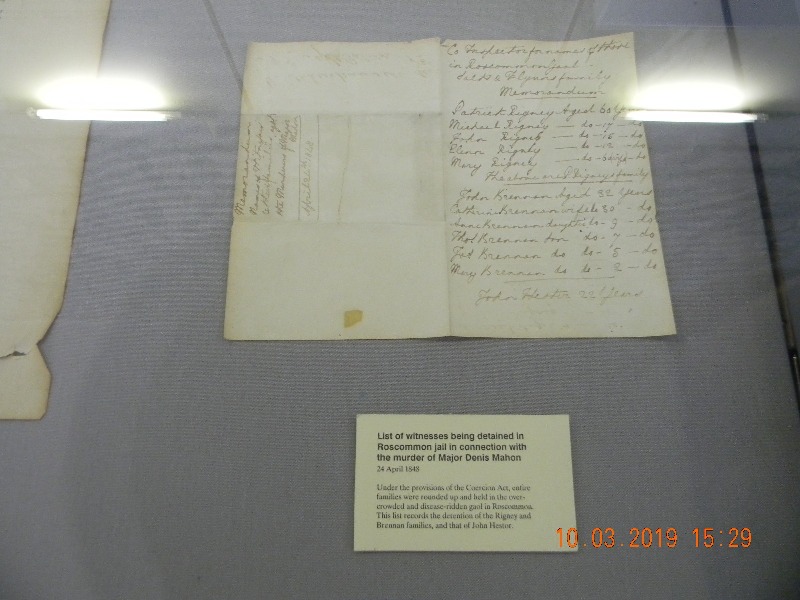 in Roscommon Jail
& Flynns family
Memorandum
Patrick Rigney Aged 50
Michael Rigney — do - 17 — do
John Rigney — do - 15 — do
Ellenn Rigney — do - 12 — do
Mary Rigney
The above are Rigneys family
John Brennan Aged 32 Years
Cathrin Brennan wife 30 — do
Anne Brennan daughter do - 9 — do
Thos Brennan son do - 7 — do
Pat Brennan do do - 5 — do
Mary Brennan do do - 2 — do
John Hester 22 Years
Memorandum
April 24th 1848
List of witnesses being detained in
Roscommon jail in connection with
the murder of Major Denis Mahon
24 April 1848
Under the provisions of the Coercion Act, entire
families were rounded up and held in the over-
crowded and disease-ridden gaol in Roscommon.
This list records the detention of the Rigney and
Brennan families, and that of John Hestor.
10.03.2019 15:29